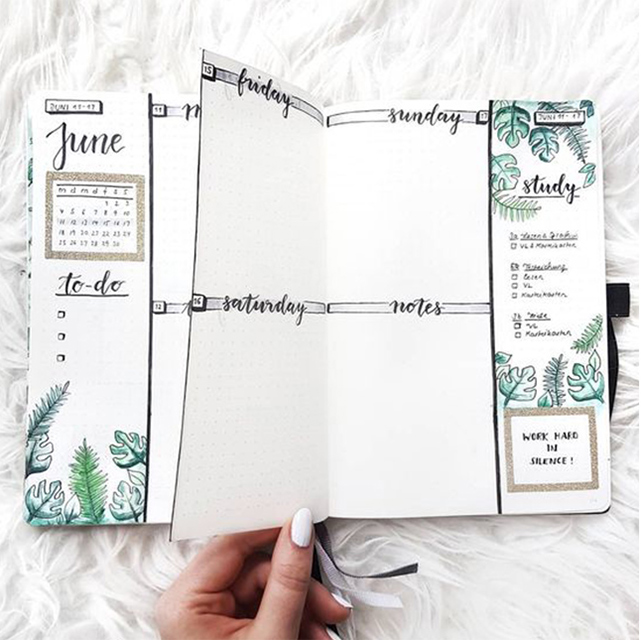 JUNI 11-17
June
m d m d f s s
1 2 3
4 5 6 7 8 9 10
11 12 13 14 15 16 17
18 19 20 21 22 23 24
25 26 27 28 29 30
to-do
11
15
friday
16
saturday
sunday
17
notes
JUNI 11-17
study
VL & Karteikarten
Lesen
VL
Karteikarten
VL
Karteikarten
WORK HARD
IN
SILENCE!